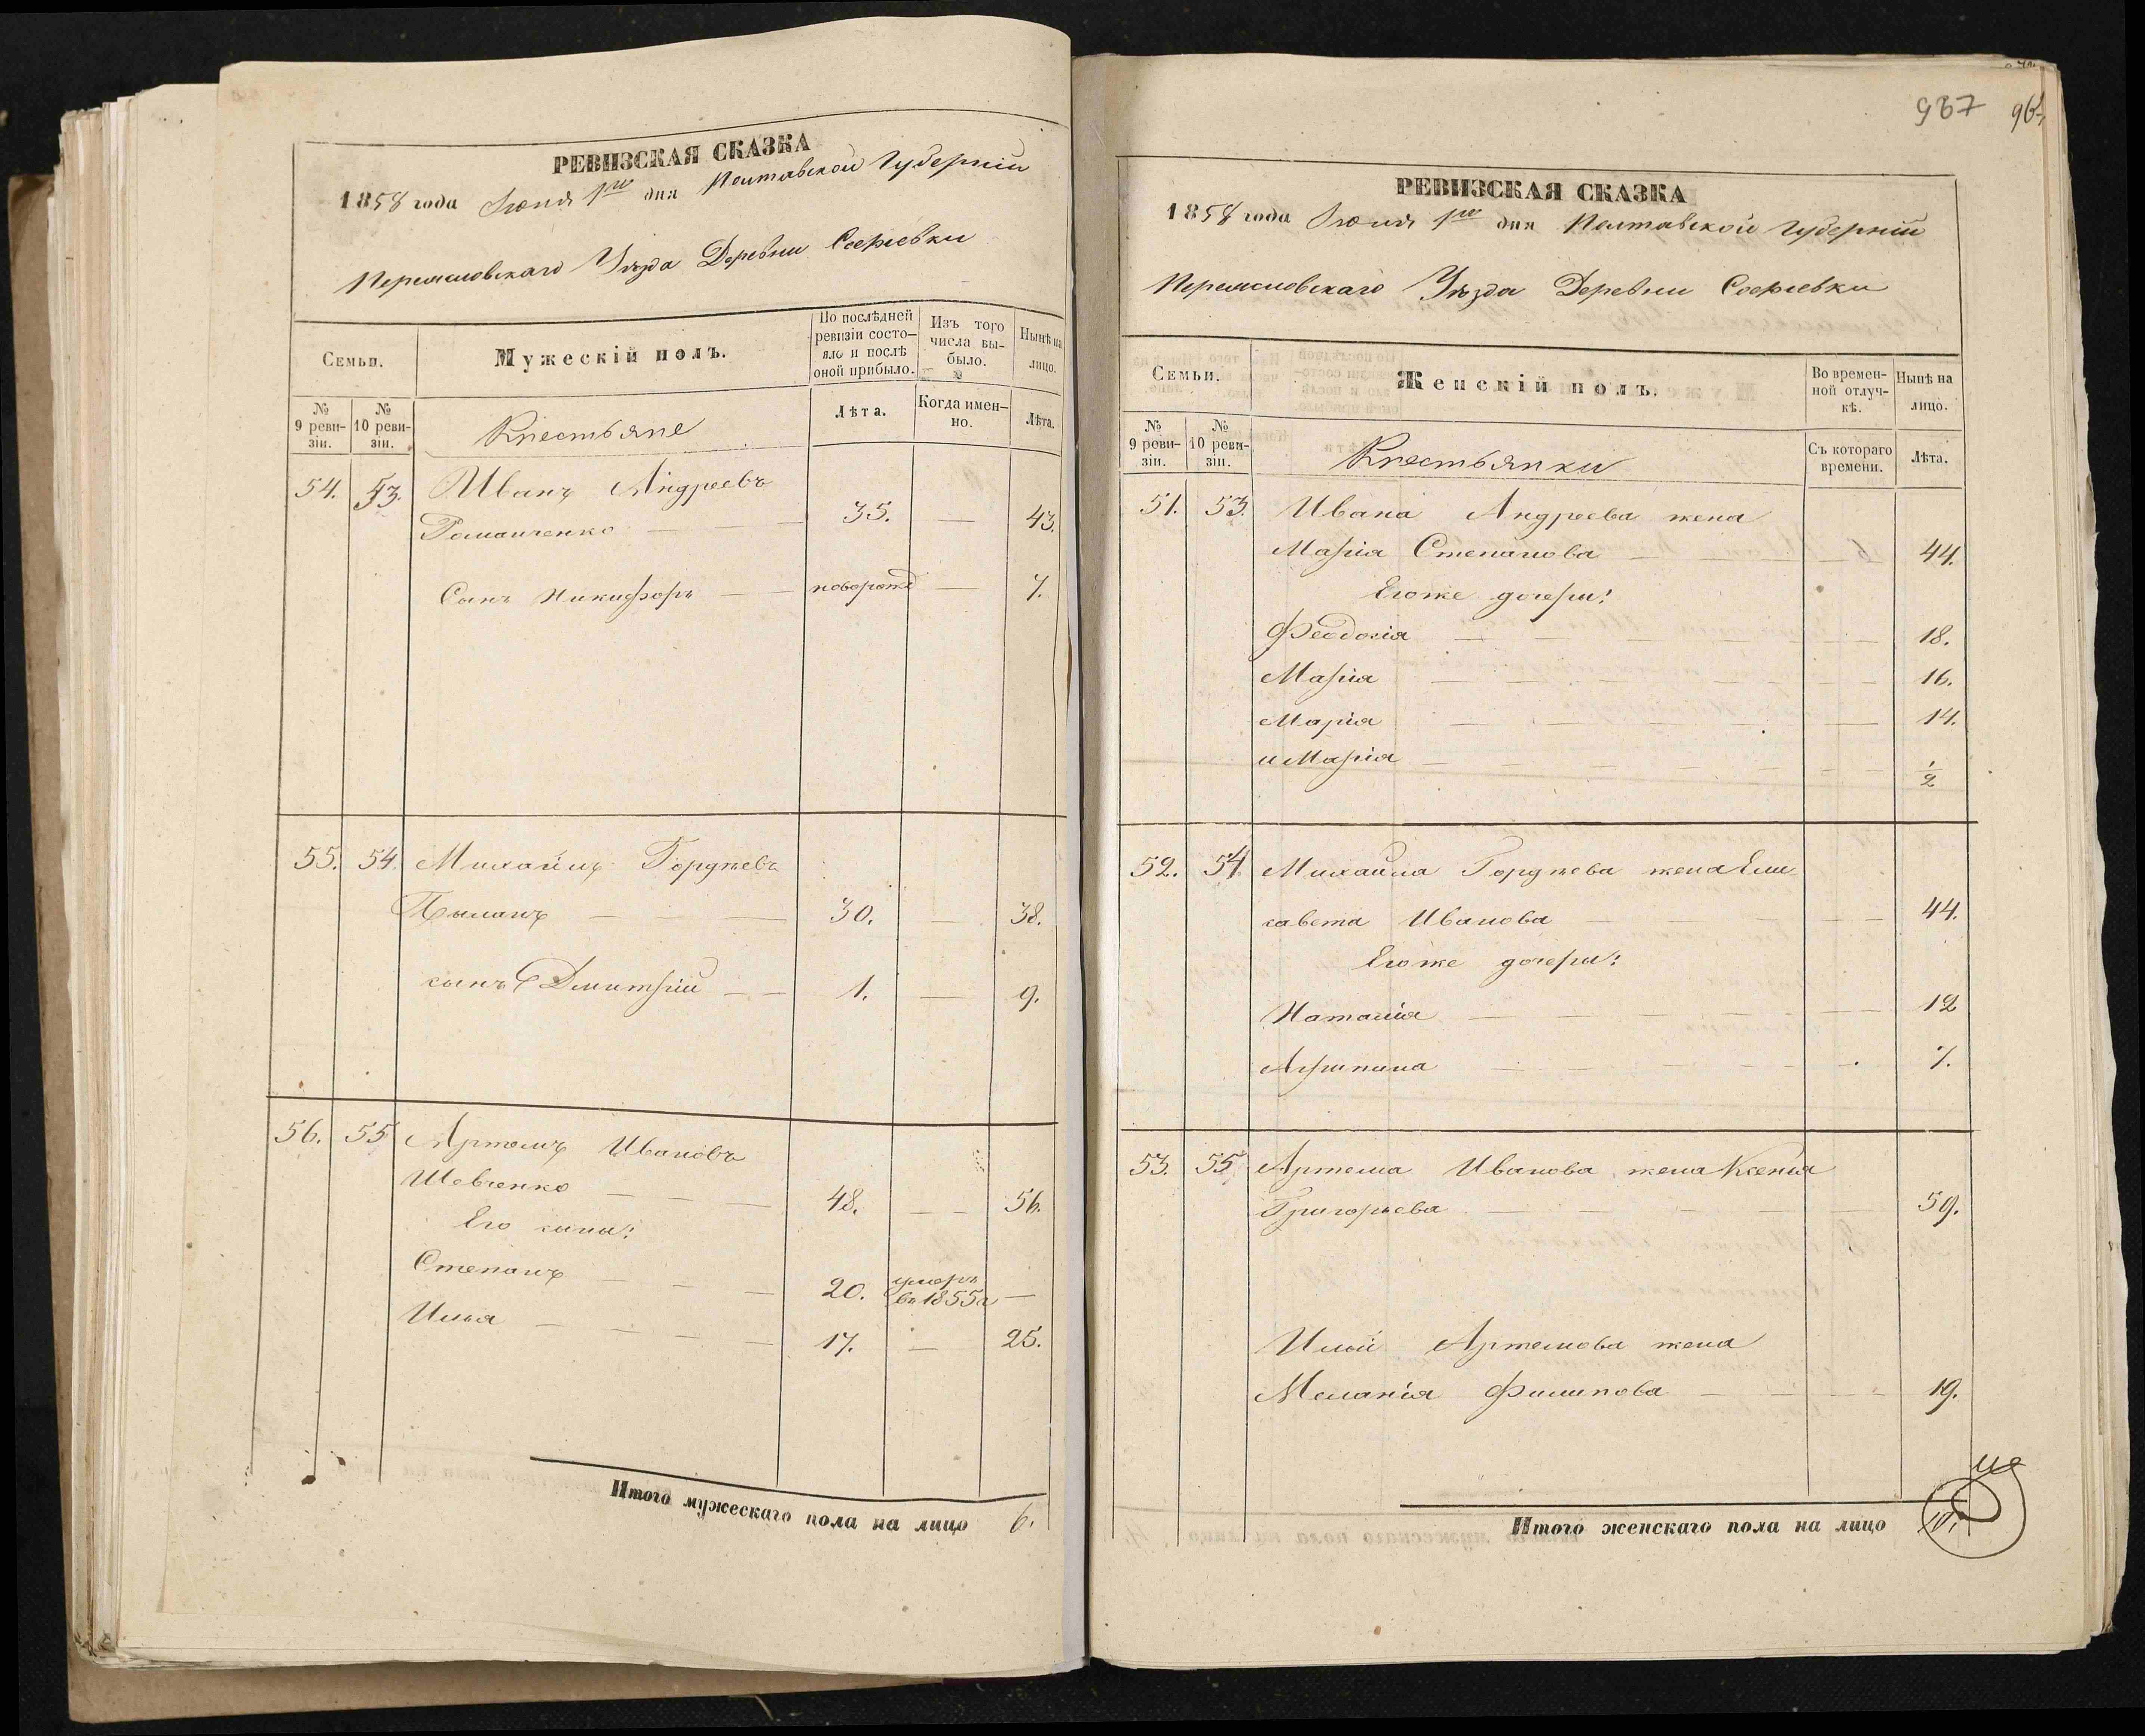 РЕВИЗСКАЯ СКАЗКА
1858 года Іюня 1го дня Полтавской Губерніи
Переяславскаго Уѣзда Деревни Сосновки
Семьи.
Мужескій полъ.
По послѣдней ревизіи состо-
яло и послѣ оной прибыло.
Изъ того числа вы-
было.
Нынѣ на лицо.
№ 9 реви-
зіи.
№ 10 реви-
зіи.
Крестьяне
Лѣта.
Когда имен-
но.
Лѣта.
54. 53. Иванъ Андреевъ
Романченко — — — 35. — 43.
Сынъ Никифоръ — — новорожд — 7.
55. 54. Михайлъ Гордѣевъ
— — — 30. — 38.
сынъ Дмитрій — — 1. — 9.
56. 55 Артемъ Ивановъ
Шевченко — — — 48. — — 56.
Его сыны:
Степанъ — — — 20. умеръ въ 1855г —
Илья — — — — 17. — 25.
Итого мужескаго пола на лицо 6.
937
РЕВИЗСКАЯ СКАЗКА
1858 года Іюня 1го дня Полтавской Губерніи
Переяславскаго Уѣзда Деревни Сосновки
Семьи.
Женскій полъ.
Во времен-
ной отлуч-
кѣ.
Нынѣ на лицо.
№ 9 реви-
зіи.
№ 10 реви-
зіи.
Крестьянки
Съ котораго времени.
Лѣта.
51. 53. Ивана Андреева жена
Марія Степанова — — 44.
Его же дочери:
Феодосія — — — — — 18.
Марія — — — — — 16.
Марія — — — — — 14.
и Марія — — — — — 1/2
52. 54 Михаила Гордѣева жена Ели
савета Иванова — — — 44.
Его же дочери:
Наталія — — — — — 12
Агрипина — — — — — 7.
53. 55 Артема Иванова жена Ксенія
Григорьева — — — — — 59.
Ильи Артемова жена
Меланія Филипова — — — — 19.
Итого женскаго пола на лицо 10.